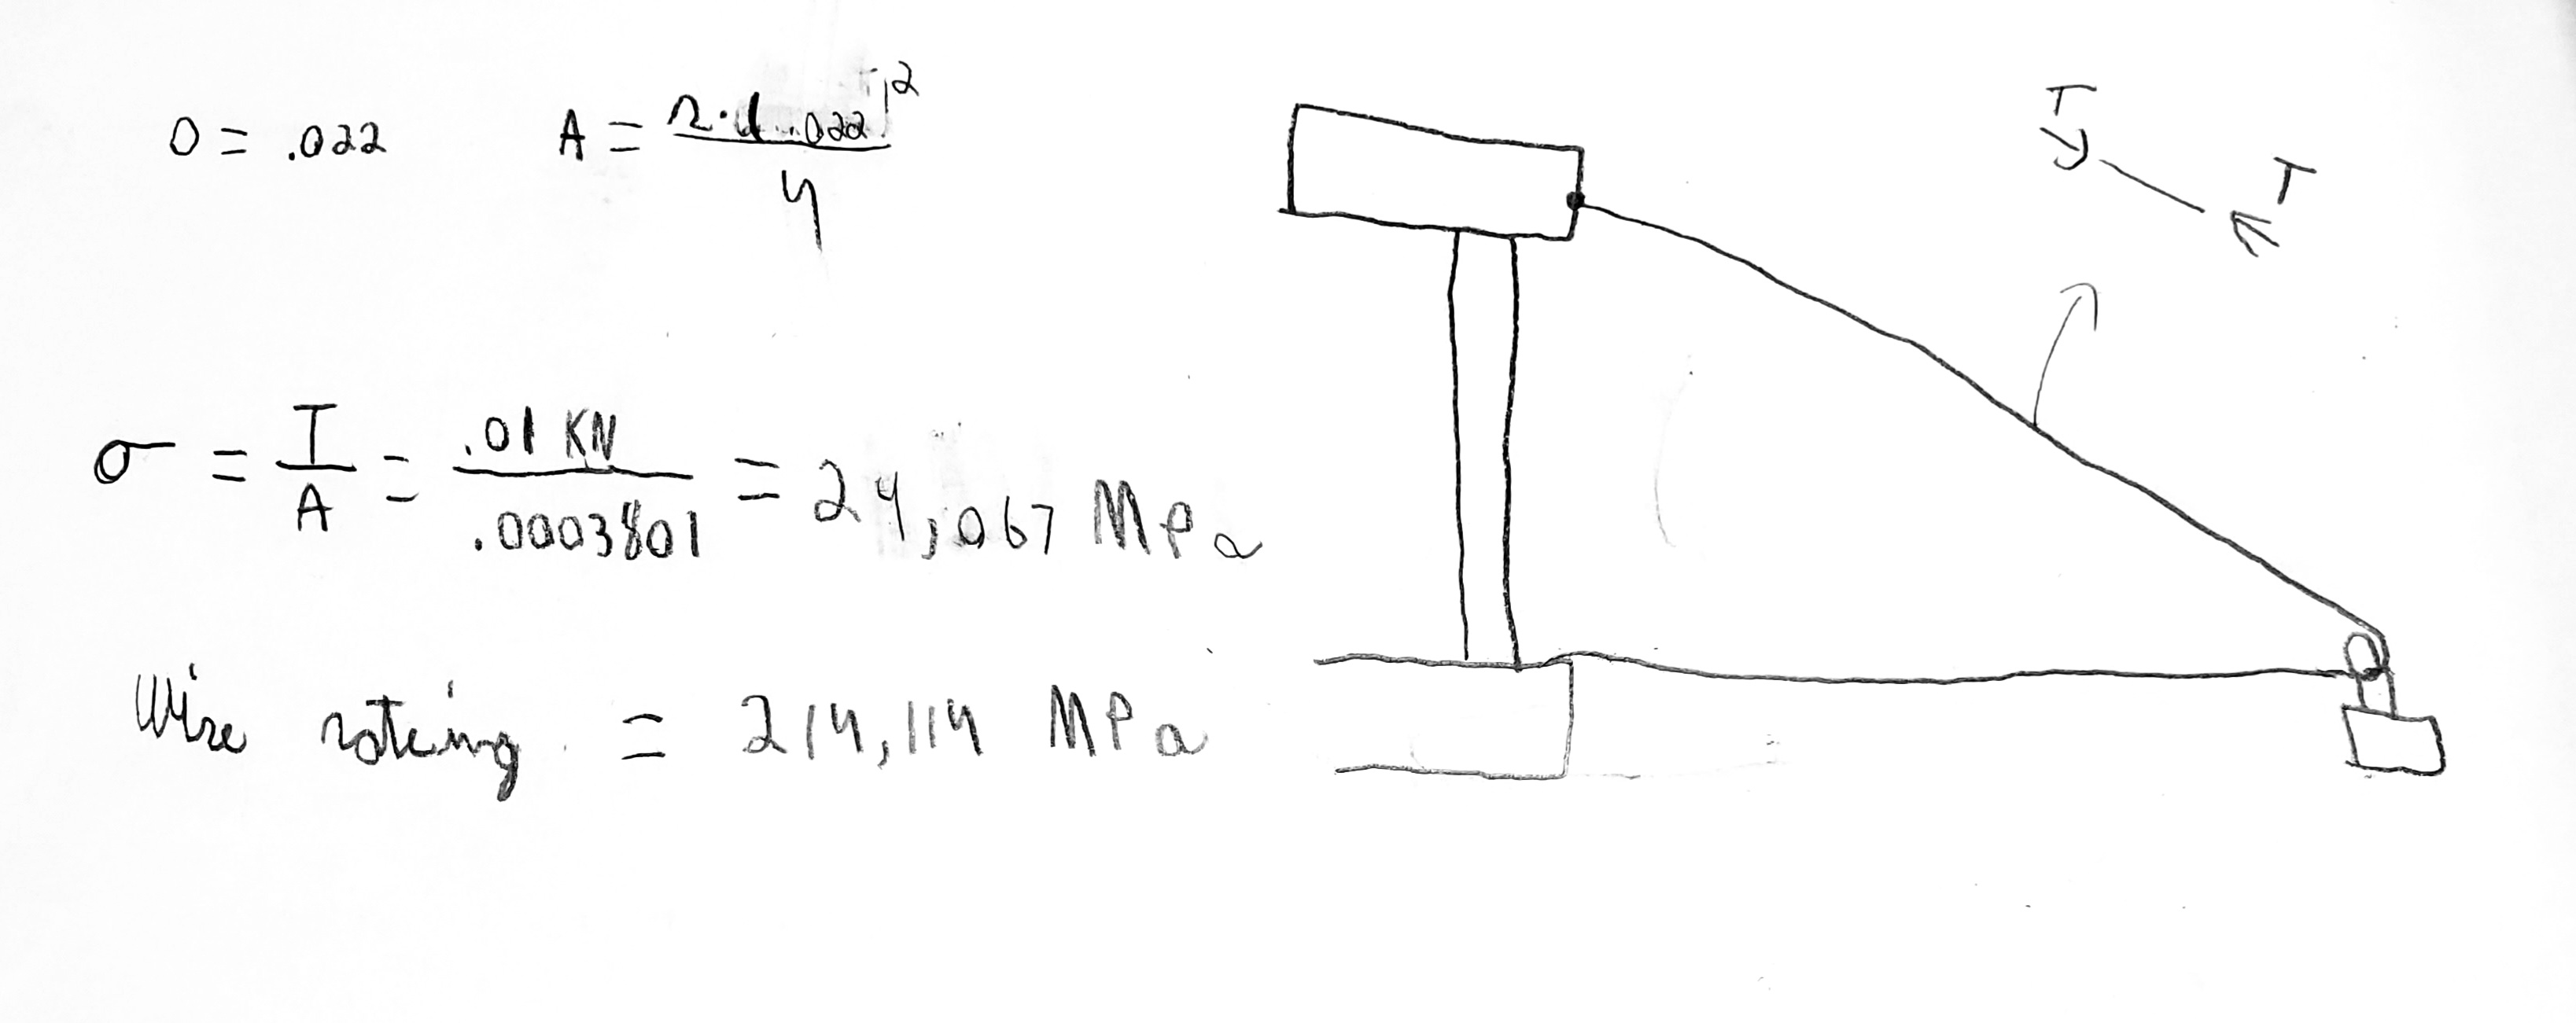 D = .022
A = π·(.022)²/4
T
T
σ = T/A = .01 KN/.0003801 = 24,067 MPa
Wire rateing = 214,114 MPa